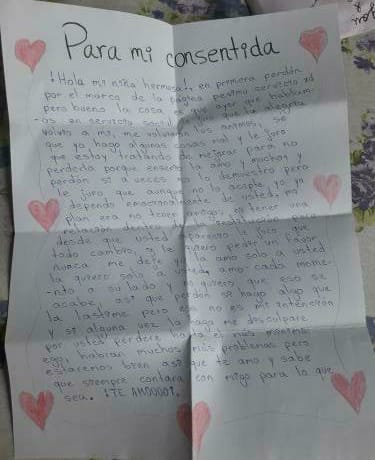 Para mi consentida
! Hola mi niña hermosa!, en primera perdón
por el marco de la página pésimo servicio xd
pero bueno la cosa es que ayer que hablam-
-os en servicio sentí que tu alegría
volvió a mi, me volvieron los animos, se
que yo hago algunas cosas mal, le juro
que estoy tratando de mejorar para no
perderla porque enserio la amo y mucho, y
perdón si a veces no lo demuestro pero
le juro que aunque no lo acepte, yo ya
dependo emocionalmente de usted, mi
plan era no traer amigo, ni tener una
relación dentro de la
desde que usted apareció le juro que
todo cambió, y le quiero pedir un favor
nunca me deje yo la amo solo a usted
la quiero solo a usted, amo cada mome-
-nto a su lado y no quiero que eso se
acabe, así que perdón si hago algo que
la lastime pero no es mi intención
y si alguna vez la haga me disculpare
por usted perdere hasta el más mínimo
ego, habran muchos más problemas pero
estaremos bien así que te amo y sabe
que siempre contara con migo para lo que
sea. ¡TE AMOOOO!.